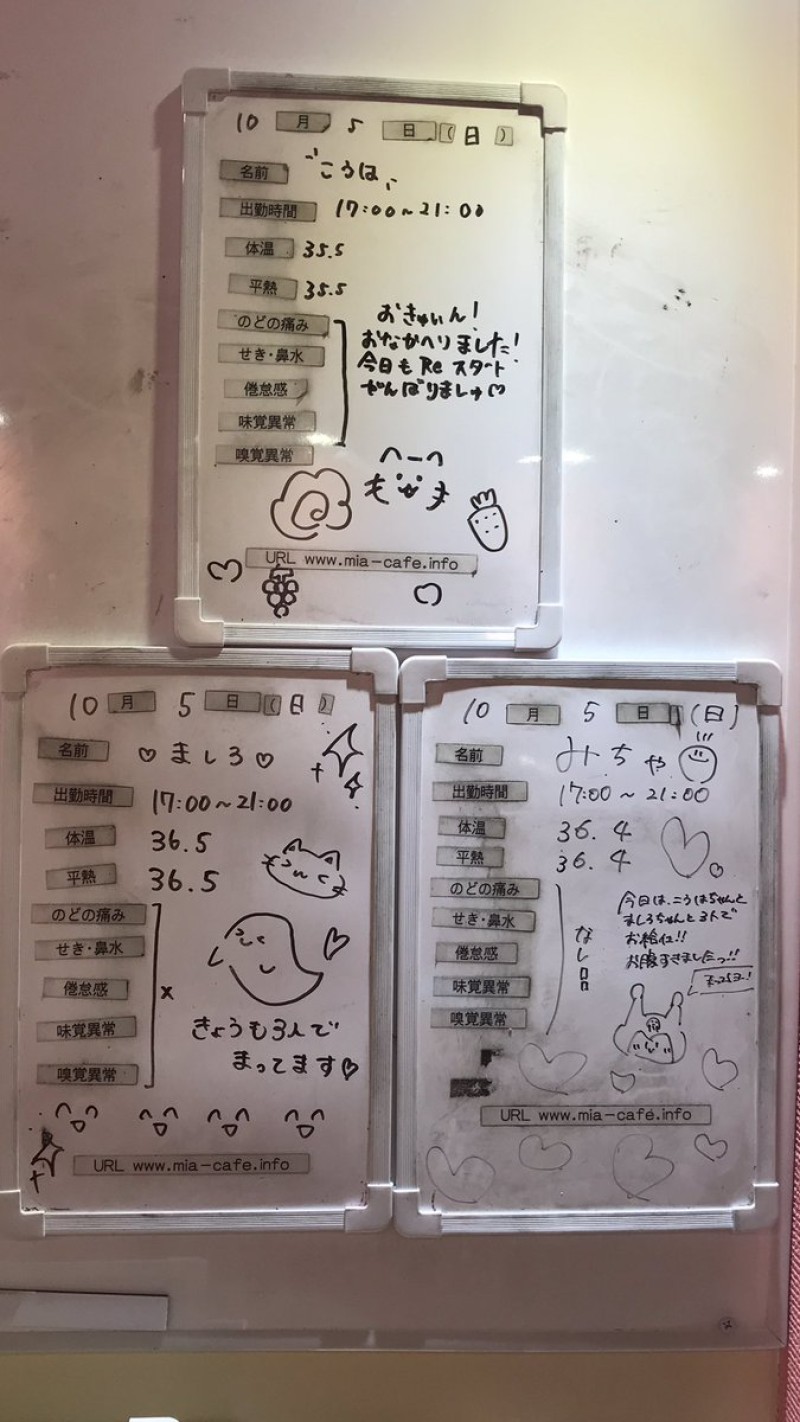 10 月 5 日 (日)
名前 こうは
出勤時間 17:00~21:00
体温 35.5
平熱 35.5
のどの痛み
せき・鼻水
倦怠感
味覚異常
嗅覚異常
おきゅいん!
おなかへりました!
今日もReスタート
がんばりましゅ♡
URL www.mia-cafe.info
10 月 5 日 (日)
名前 ♡ましろ♡
出勤時間 17:00~21:00
体温 36.5
平熱 36.5
のどの痛み
せき・鼻水
倦怠感
味覚異常
嗅覚異常
x
きょうも3人で
まってます♡
URL www.mia-cafe.info
10 月 5 日 (日)
名前 みちゃ
出勤時間 17:00~21:00
体温 36.4
平熱 36.4
のどの痛み
せき・鼻水
倦怠感
味覚異常
嗅覚異常
なし
今日は、こうはちゃんと
ましろちゃんと3人で
お給仕!!
お腹すきましたっ!!
URL www.mia-cafe.info